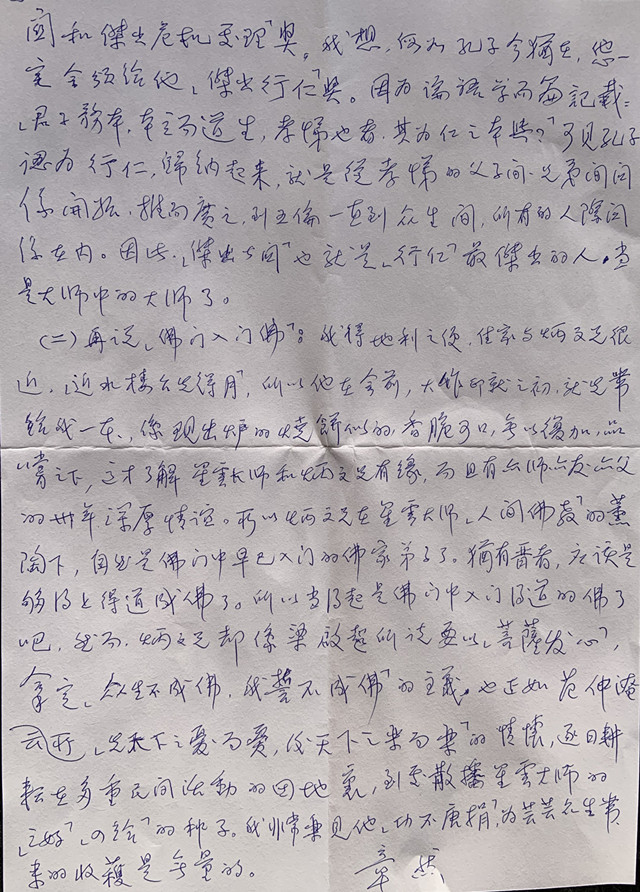 和傑出危机处理」獎。我想,何如孔子今猶在,您一
定会颁给他「傑出行仁」獎。因为論語学而篇記載:
「君子務本,本立而道生,孝悌也者,其为仁之本與?」可见孔子
認为行仁,歸納起来,就是從孝悌的父子间兄弟间関
係開始,推而廣之,到五倫一直到众生间,所有的人際関
係在内。因此,「傑出公関」也就是「行仁」最傑出的人,当
是大师中的大师了。
(二)再说「佛门入门佛」:我得地利之便,住家与炳文兄很
近,「近水楼台先得月」,所以他在会前,大作印就之初,就先带
给我一本,像现出炉的烧餅似的,香脆可口,無以復加,品
嘗之下,这才了解星雲大师和炳文兄有缘,而且有亦师亦友亦父
的卅年深厚情谊。所以炳文兄在星雲大师「人间佛教」的薰
陶下,自然是佛门中早已入门的佛家弟子了。猶有甚者,应该是
够得上得道成佛了。所以当得起是佛门中入门得道的佛了
吧,然而,炳文兄却像梁啟超所说要以「菩薩发心」,
拿定「众生不成佛,我誓不成佛」的主義。也正如范仲淹
所「先天下之憂而憂,後天下之樂而樂」的情懷,逐日耕
耘在多重民间活動的田地裏,到处散播星雲大师的
「三好」「四给」的种子。我非常樂见他「功不唐捐」,为芸芸众生带
来的收獲是無量的。
章